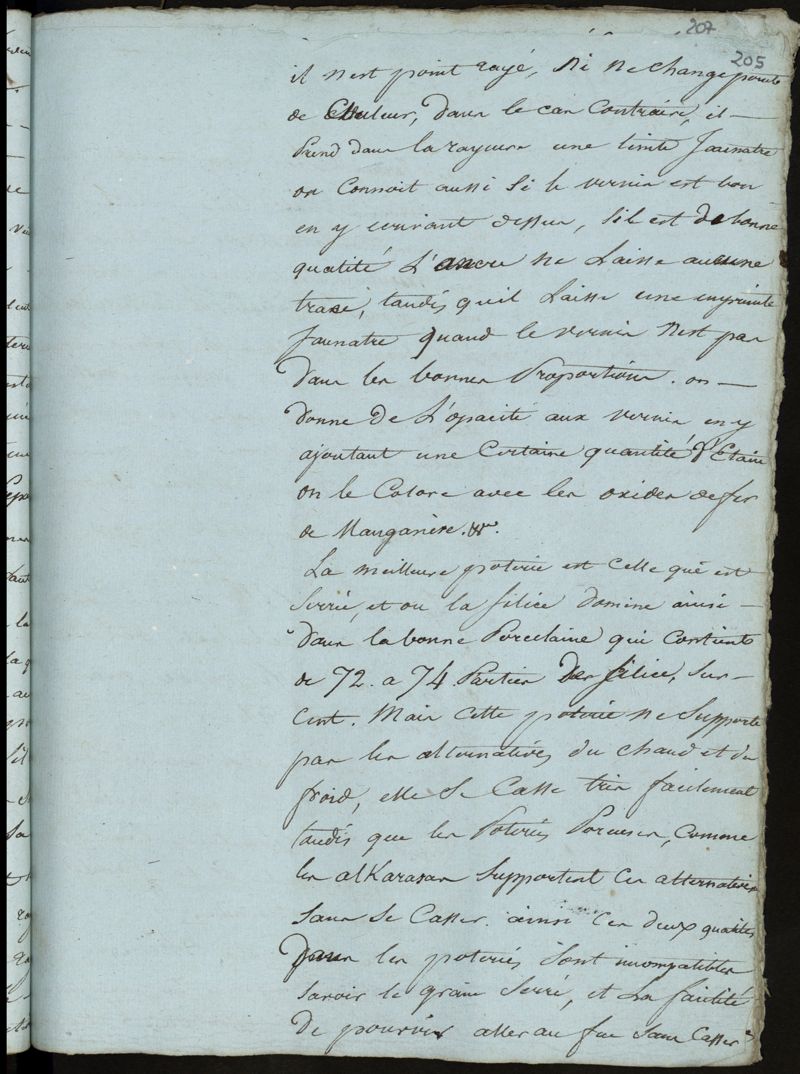 207
205
il n'est point rayé, Ni ne change point
de Couleur, dans le cas Contraire, il —
Prend dans la rayure une tinte Jaunatre
on Connoit aussi Si le vernis est bon
en y ecrivant dessus, S'il est de bonne
qualité L'ancre ne Laisse aucune
trace, tandis qu'il Laisse une empreinte
Jaunatre quand le vernis N'est pas
dans les bonnes Proportions. on —
donne de L'opacité aux vernis en y
ajoutant une Certaine quantité d'Etain
on le Colore avec les oxides de fer
de Manganèse. &c.
La meilleure poterie est Celle qui est
Serrée, et ou la Silice domine ainsi —
dans la bonne Porcelaine qui Contient
de 72. a 74 Parties De Silice, Sur —
Cent. Mais Cette poterie ne Supporte
pas les alternatives du Chaud et du
froid, elle Se Casse très facilement
tandis que les Poteries Poreuses, Comme
les alKarasas Supportent Ces alternatives
Sans Se Casser. ainsi Ces deux qualités
Dans les poteries Sont incompatibles
Savoir le grain Serré, et La facilité
De pouvoir aller au feu Sans Casser